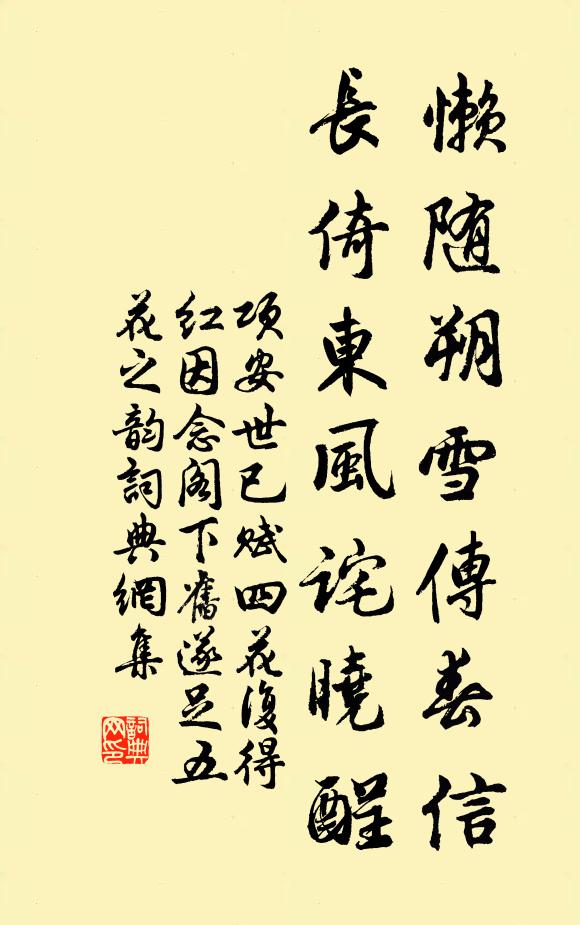 懒随朔雪傳春信
長倚東風詫曉醒
项安世已赋四花復得
红因念阁下舊遂足五
花之韵詞典網集
詞典网印